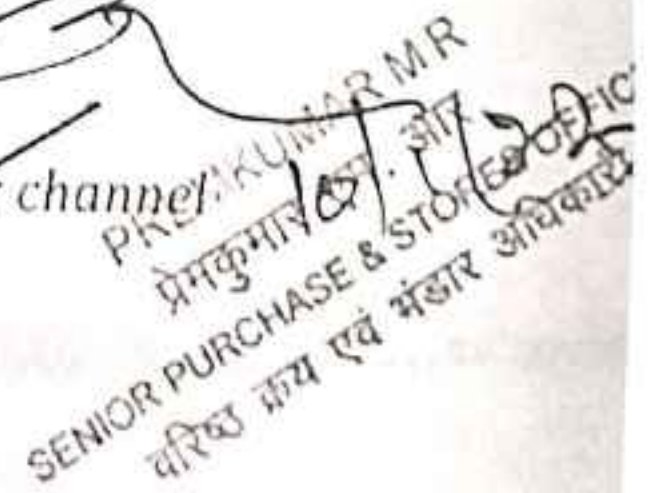 channel
KUMAR M R
प्रेमकुमार एम. आर
SENIOR PURCHASE & STORES OFFIC
वरिष्ठ क्रय एवं भंडार अधिकारी